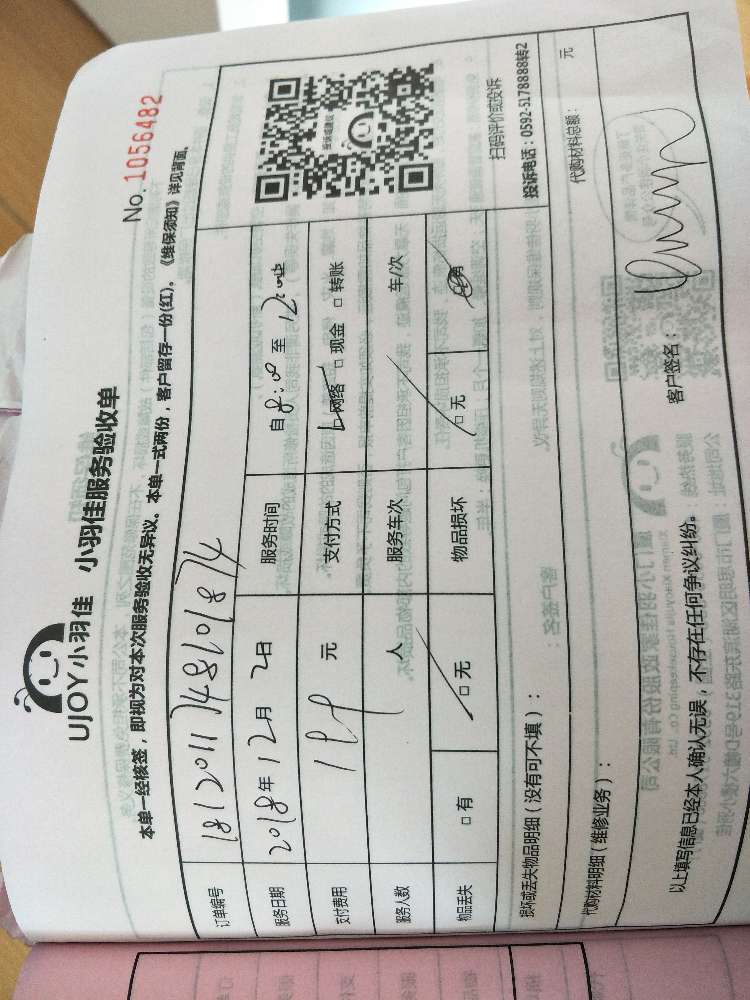 UJOY小羽佳 小羽佳服务验收单
No. 1056482
本单一经核签，即视为对本次服务验收无异议。本单一式两份，客户留存一份(红)。《维保须知》详见背面。
订单编号
服务日期 2018年12月2日 服务时间 自8:00至12:00
支付费用 199 元 支付方式 □网络 □现金 □转账
服务人数 人 服务车次 车/次
物品丢失 □有 □无 物品损坏 □无
扫码评价或投诉
投诉电话：0592-5178888转2
损坏或丢失物品明细（没有可不填）：
代购材料明细（维修业务）： 代购材料总额： 元
以上填写信息已经本人确认无误，不存在任何争议纠纷。 客户签名：